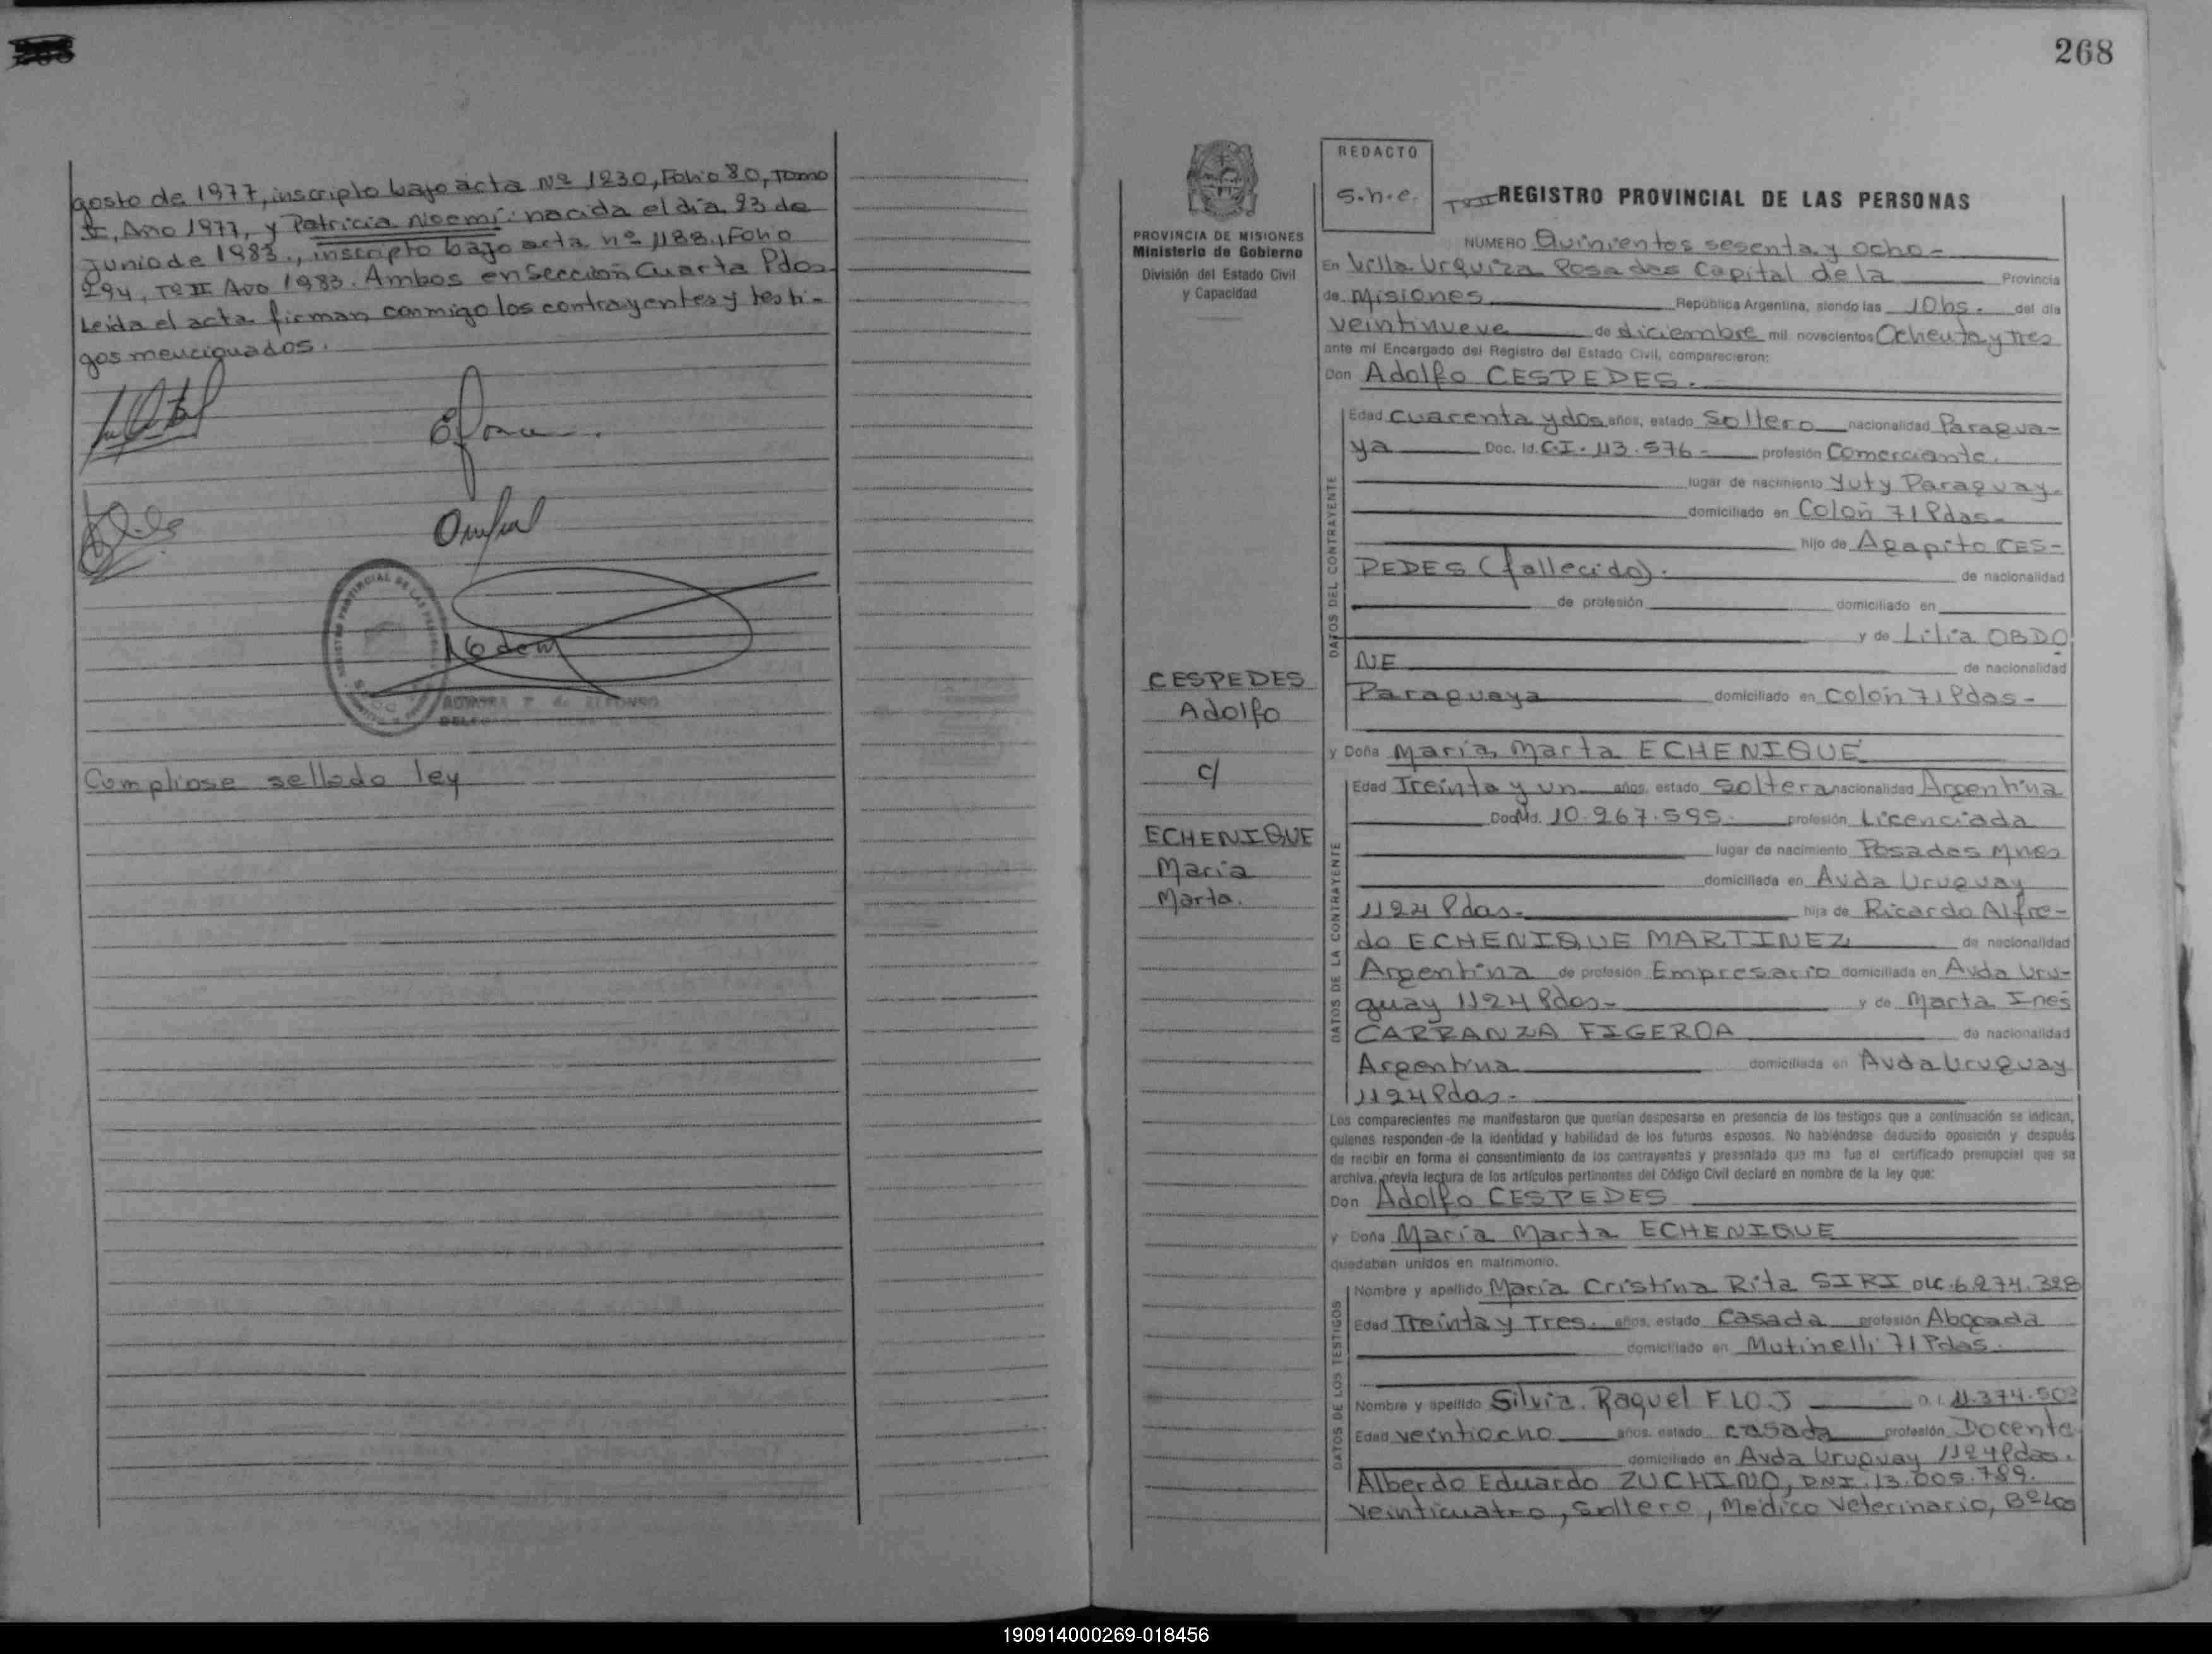 268
gosto de 1977, inscripto bajo acta Nº 1230, Folio 80, Tomo
Año 1977, y Patricia Noemí: nacida el día 23 de
Junio de 1983., inscripto bajo acta nº 1188, Folio
294, Tº II Año 1983. Ambos en Sección Cuarta Pdas
Leida el acta firman conmigo los contrayentes y testi-
gos mencionados.
REGISTRO PROVINCIAL DE LAS PERSONAS
Cumpliose sellado ley
268
REDACTO
S.h.e.
REGISTRO PROVINCIAL DE LAS PERSONAS
PROVINCIA DE MISIONES
Ministerio de Gobierno
División del Estado Civil
y Capacidad
CESPEDES
Adolfo
c/
ECHENIQUE
María
Marta.
NUMERO Quinientos sesenta y ocho-
En Villa Urquiza Posadas Capital de la Provincia
de Misiones República Argentina, siendo las 10 hs. del día
veintinueve de diciembre mil novecientos Ochenta y Tres
ante mí Encargado del Registro del Estado Civil, comparecieron:
Don Adolfo CESPEDES.
DATOS DEL CONTRAYENTE
Edad cuarenta y dos años, estado Soltero nacionalidad Paragua-
ya Doc. Id. C.I. 113.576- profesión Comerciante.
lugar de nacimiento Yuty Paraguay
domiciliado en Colón 71 Pdas-
hijo de Agapito CES-
PEDES (fallecido). de nacionalidad
de profesión domiciliado en
y de Lilia OBDO
NE de nacionalidad
Paraguaya domiciliado en Colón 71 Pdas-
y Doña María Marta ECHENIQUE
DATOS DE LA CONTRAYENTE
Edad Treinta y un años, estado Soltera nacionalidad Argentina
Doc. Id. 10.967.595. profesión Licenciada
lugar de nacimiento Posadas Mnes
domiciliada en Avda Uruguay
1124 Pdas- hija de Ricardo Alfre-
do ECHENIQUE MARTINEZ de nacionalidad
Argentina de profesión Empresario domiciliada en Avda Uru-
guay 1124 Pdas- y de Marta Inés
CARRANZA FIGEROA de nacionalidad
Argentina domiciliada en Avda Uruguay
1124 Pdas-
Los comparecientes me manifestaron que querían desposarse en presencia de los testigos que a continuación se indican,
quienes responden de la identidad y habilidad de los futuros esposos. No habiéndose deducido oposición y después
de recibir en forma el consentimiento de los contrayentes y presentado que me fue el certificado prenupcial que se
archiva, previa lectura de los artículos pertinentes del Código Civil declaré en nombre de la ley que:
Don Adolfo CESPEDES
y Doña María Marta ECHENIQUE
quedaban unidos en matrimonio.
DATOS DE LOS TESTIGOS
Nombre y apellido María Cristina Rita SIRI DLC. 6.274.328
Edad Treinta y Tres. años, estado Casada profesión Abogada
domiciliado en Mutinelli 71 Pdas.
Nombre y apellido Silvia Raquel FLOJ 11.374.502
Edad veintiocho años, estado casada profesión Docente
domiciliado en Avda Uruguay 1124 Pdas.
Alberdo Eduardo ZUCHINO, DNI. 13.005.789.
Veinticuatro, Soltero, Médico Veterinario, Bº Los
190914000269-018456